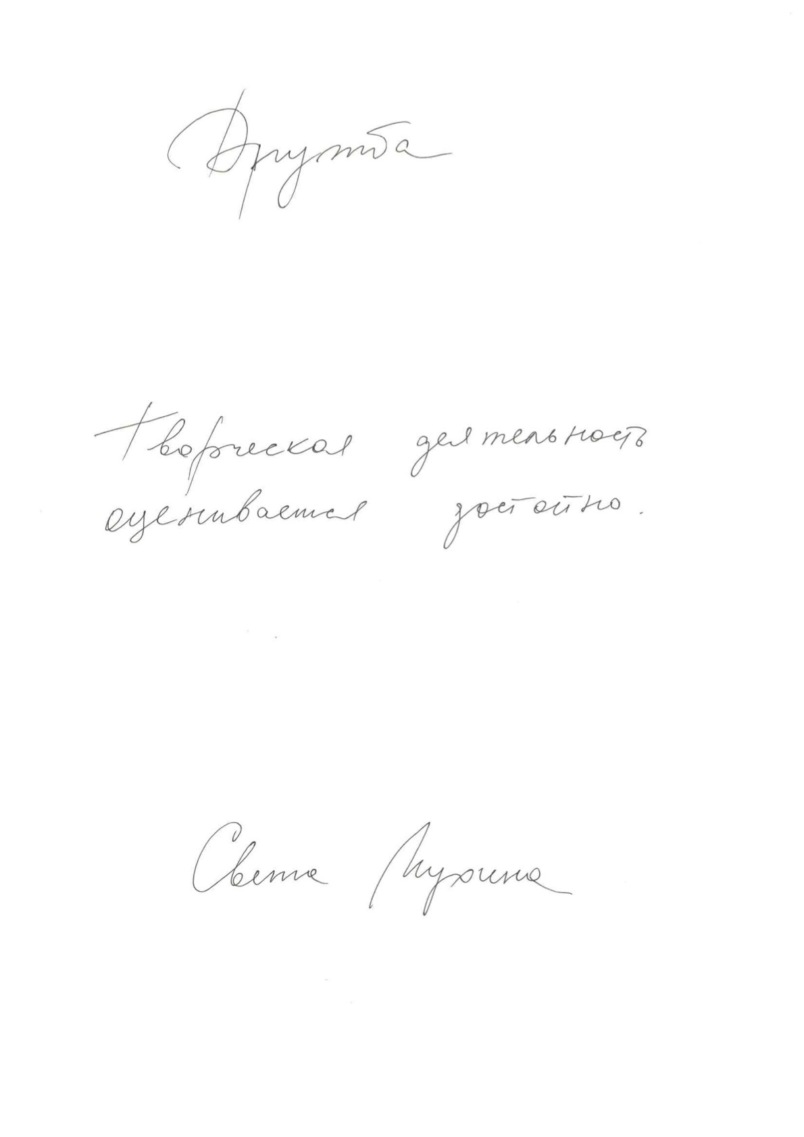 Дружба
Творческая деятельность
оценивается достойно.
Света Мухина